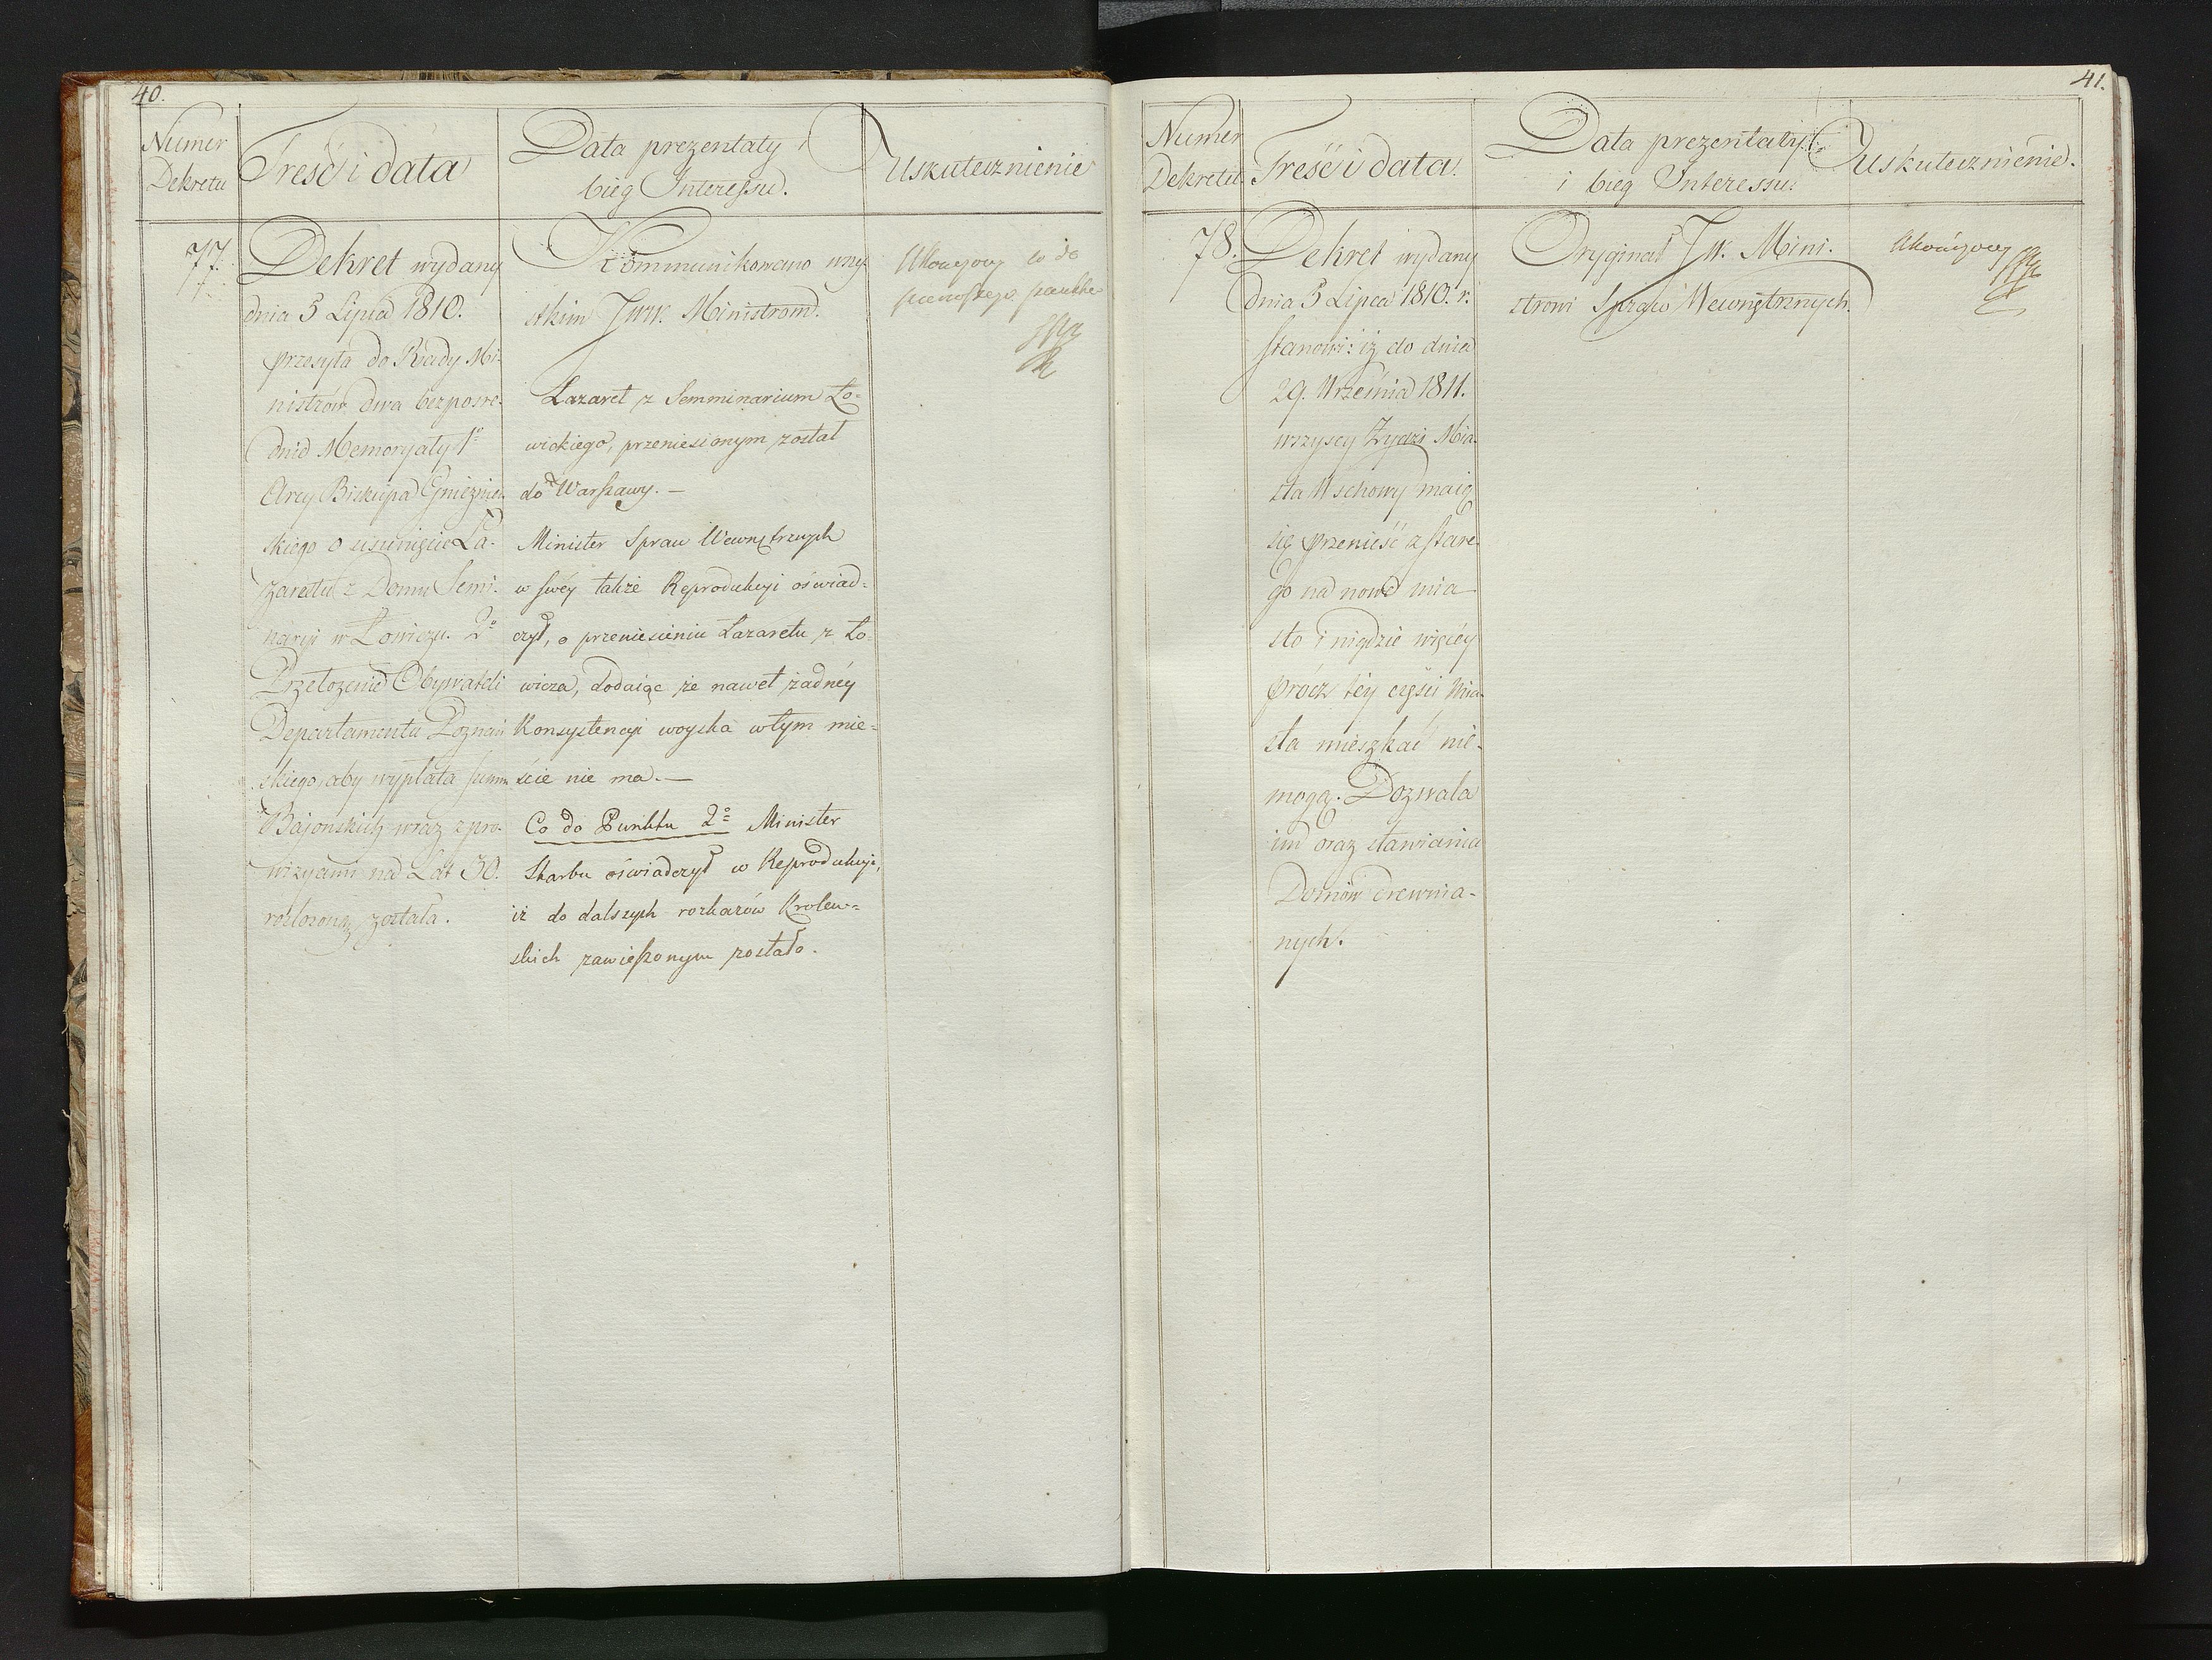 40.
Numer
Dekretu
Treść i data
Data prezentaty i
bieg Interessu.
Uskutecznienie
77.
Dekret wydany
dnia 5 Lipca 1810.
przesyła do Rady Mi-
nistrów dwa bezpośre-
dnie Memoryały 1º
Arcy Biskupa Gnieznień-
skiego o usunięcie La-
zaretu z Domu Semi-
naryi w Łowiczu. 2º
Przełożenie Obywateli
Departamentu Poznań
skiego, aby wypłata summ
Bajońskich wraz z pro-
wizyami na Lat 30.
rozłożoną została.
Kommunikowano wszy-
stkim JWW. Ministrom.
Lazaret z Semminarium Ło-
wickiego, przeniesionym został
do Warszawy. —
Minister Spraw Wewnętrznych
w swéy także Reprodukcyi oświad-
czył, o przeniesieniu Lazaretu z Ło-
wicza, dodaiąc że nawet żadnéy
Konsystencyi woyska w tym mie-
ście nie ma. —
Co do Punktu 2º Minister
Skarbu oświadczył w Reprodukcyi,
iż do dalszych rozkazów Krolew-
skich zawieszonym zostało.
Ukończony co do
pierwszego punktu
41.
Numer
Dekretu
Treść i data.
Data prezentaty
i bieg Interessu.
Uskutecznienie.
78.
Dekret wydany
dnia 5 Lipca 1810. r.
stanowi: iż do dnia
29. Września 1811.
wszyscy Żydzi Mia-
sta Wschowy maią
się przenieść z stare-
go na nowe mia-
sto i nigdzie więcéy
prócz téy części Mia-
sta mieszkać nie-
mogą. Dozwala
im oraz stawiania
Domów drewnia-
nych.
Oryginał JW. Mini-
strowi Spraw Wewnętrznych.
Ukończony